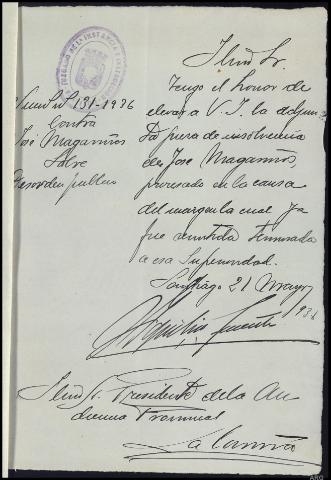 JUZGADO DE 1ª INSTANCIA E INSTRUCCION
Sum. nº 131-1936
Contra
José Magariños
Sobre
Desorden publico
Ilmo Sr.
Tengo el honor de
elevar a V. I. la adjun-
ta pieza de insolvencia
de José Magariños,
procesado en la causa
del margen la cual ya
fue remitida terminada
a esa Superioridad.
Santiago 21 Mayo
1936
Ilmo Sr. Presidente de la Au
diencia Provincial
La Coruña